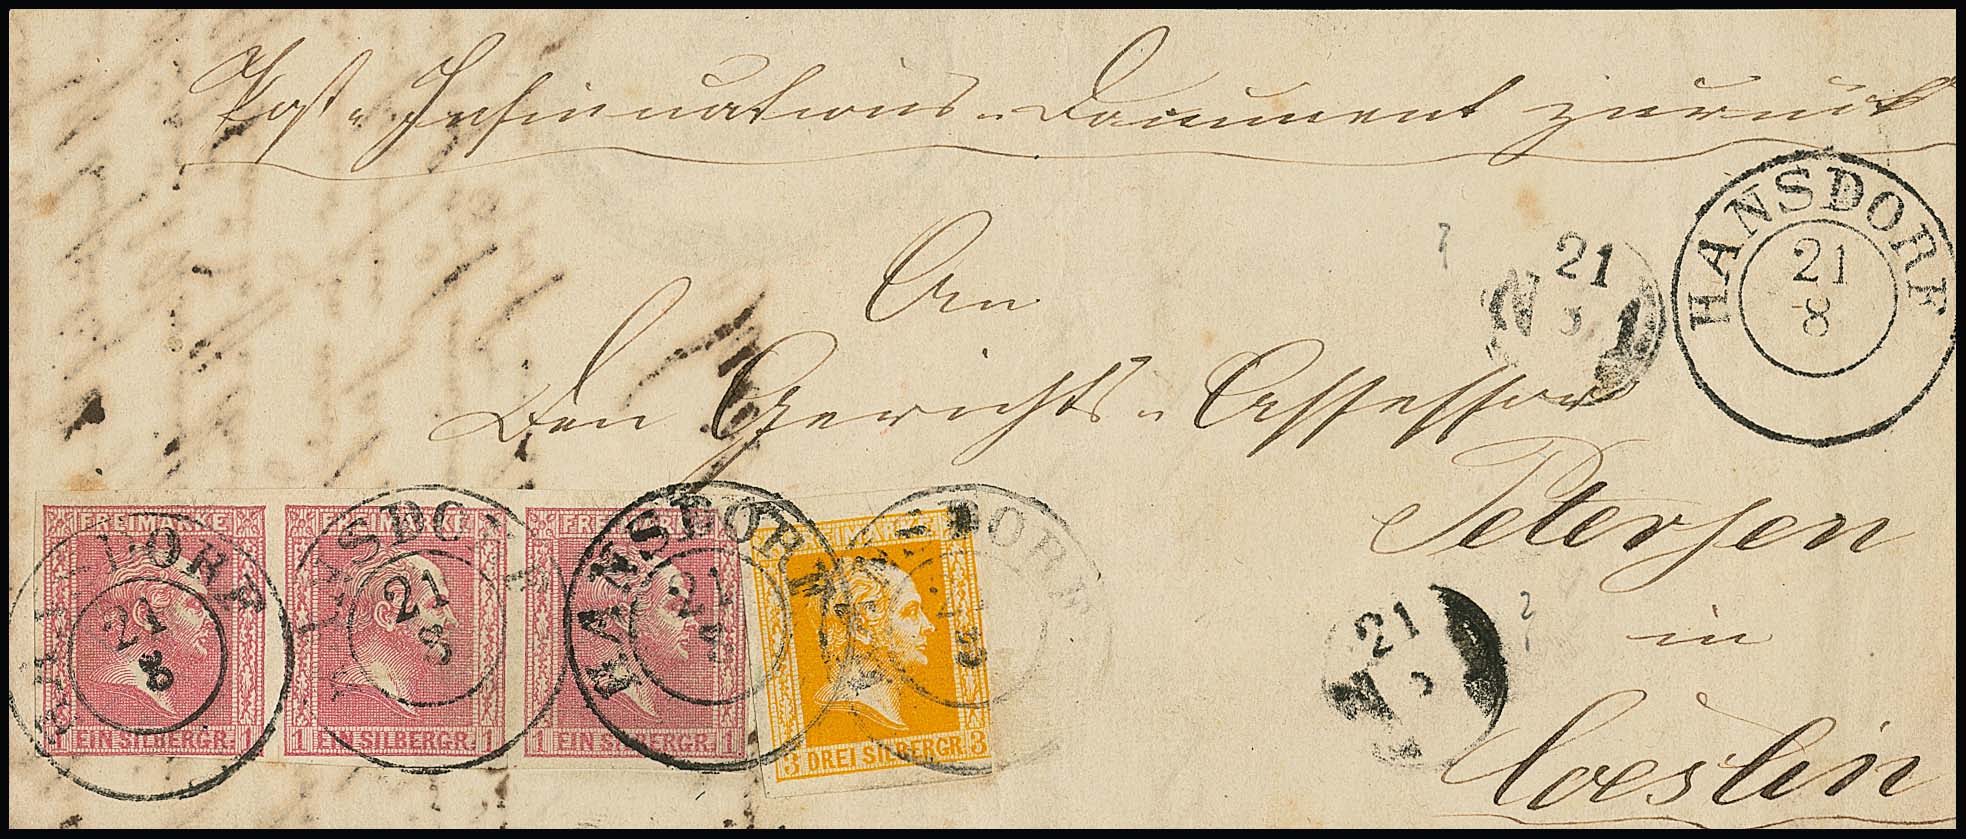 Post-Insinuations-Document zurück
An
Den Gerichts-Assessor
Petersen
in
Coeslin
HANSDORF
21
8
21
N 1
21
N
HANSDORF
21
8
HANSDORF
21
8
HANSDORF
21
8
HANSDORF
21
8
FREIMARKE
1 EIN SILBERGR. 1
FREIMARKE
1 EIN SILBERGR. 1
FREIMARKE
1 EIN SILBERGR. 1
FREIMARKE
3 DREI SILBERGR. 3